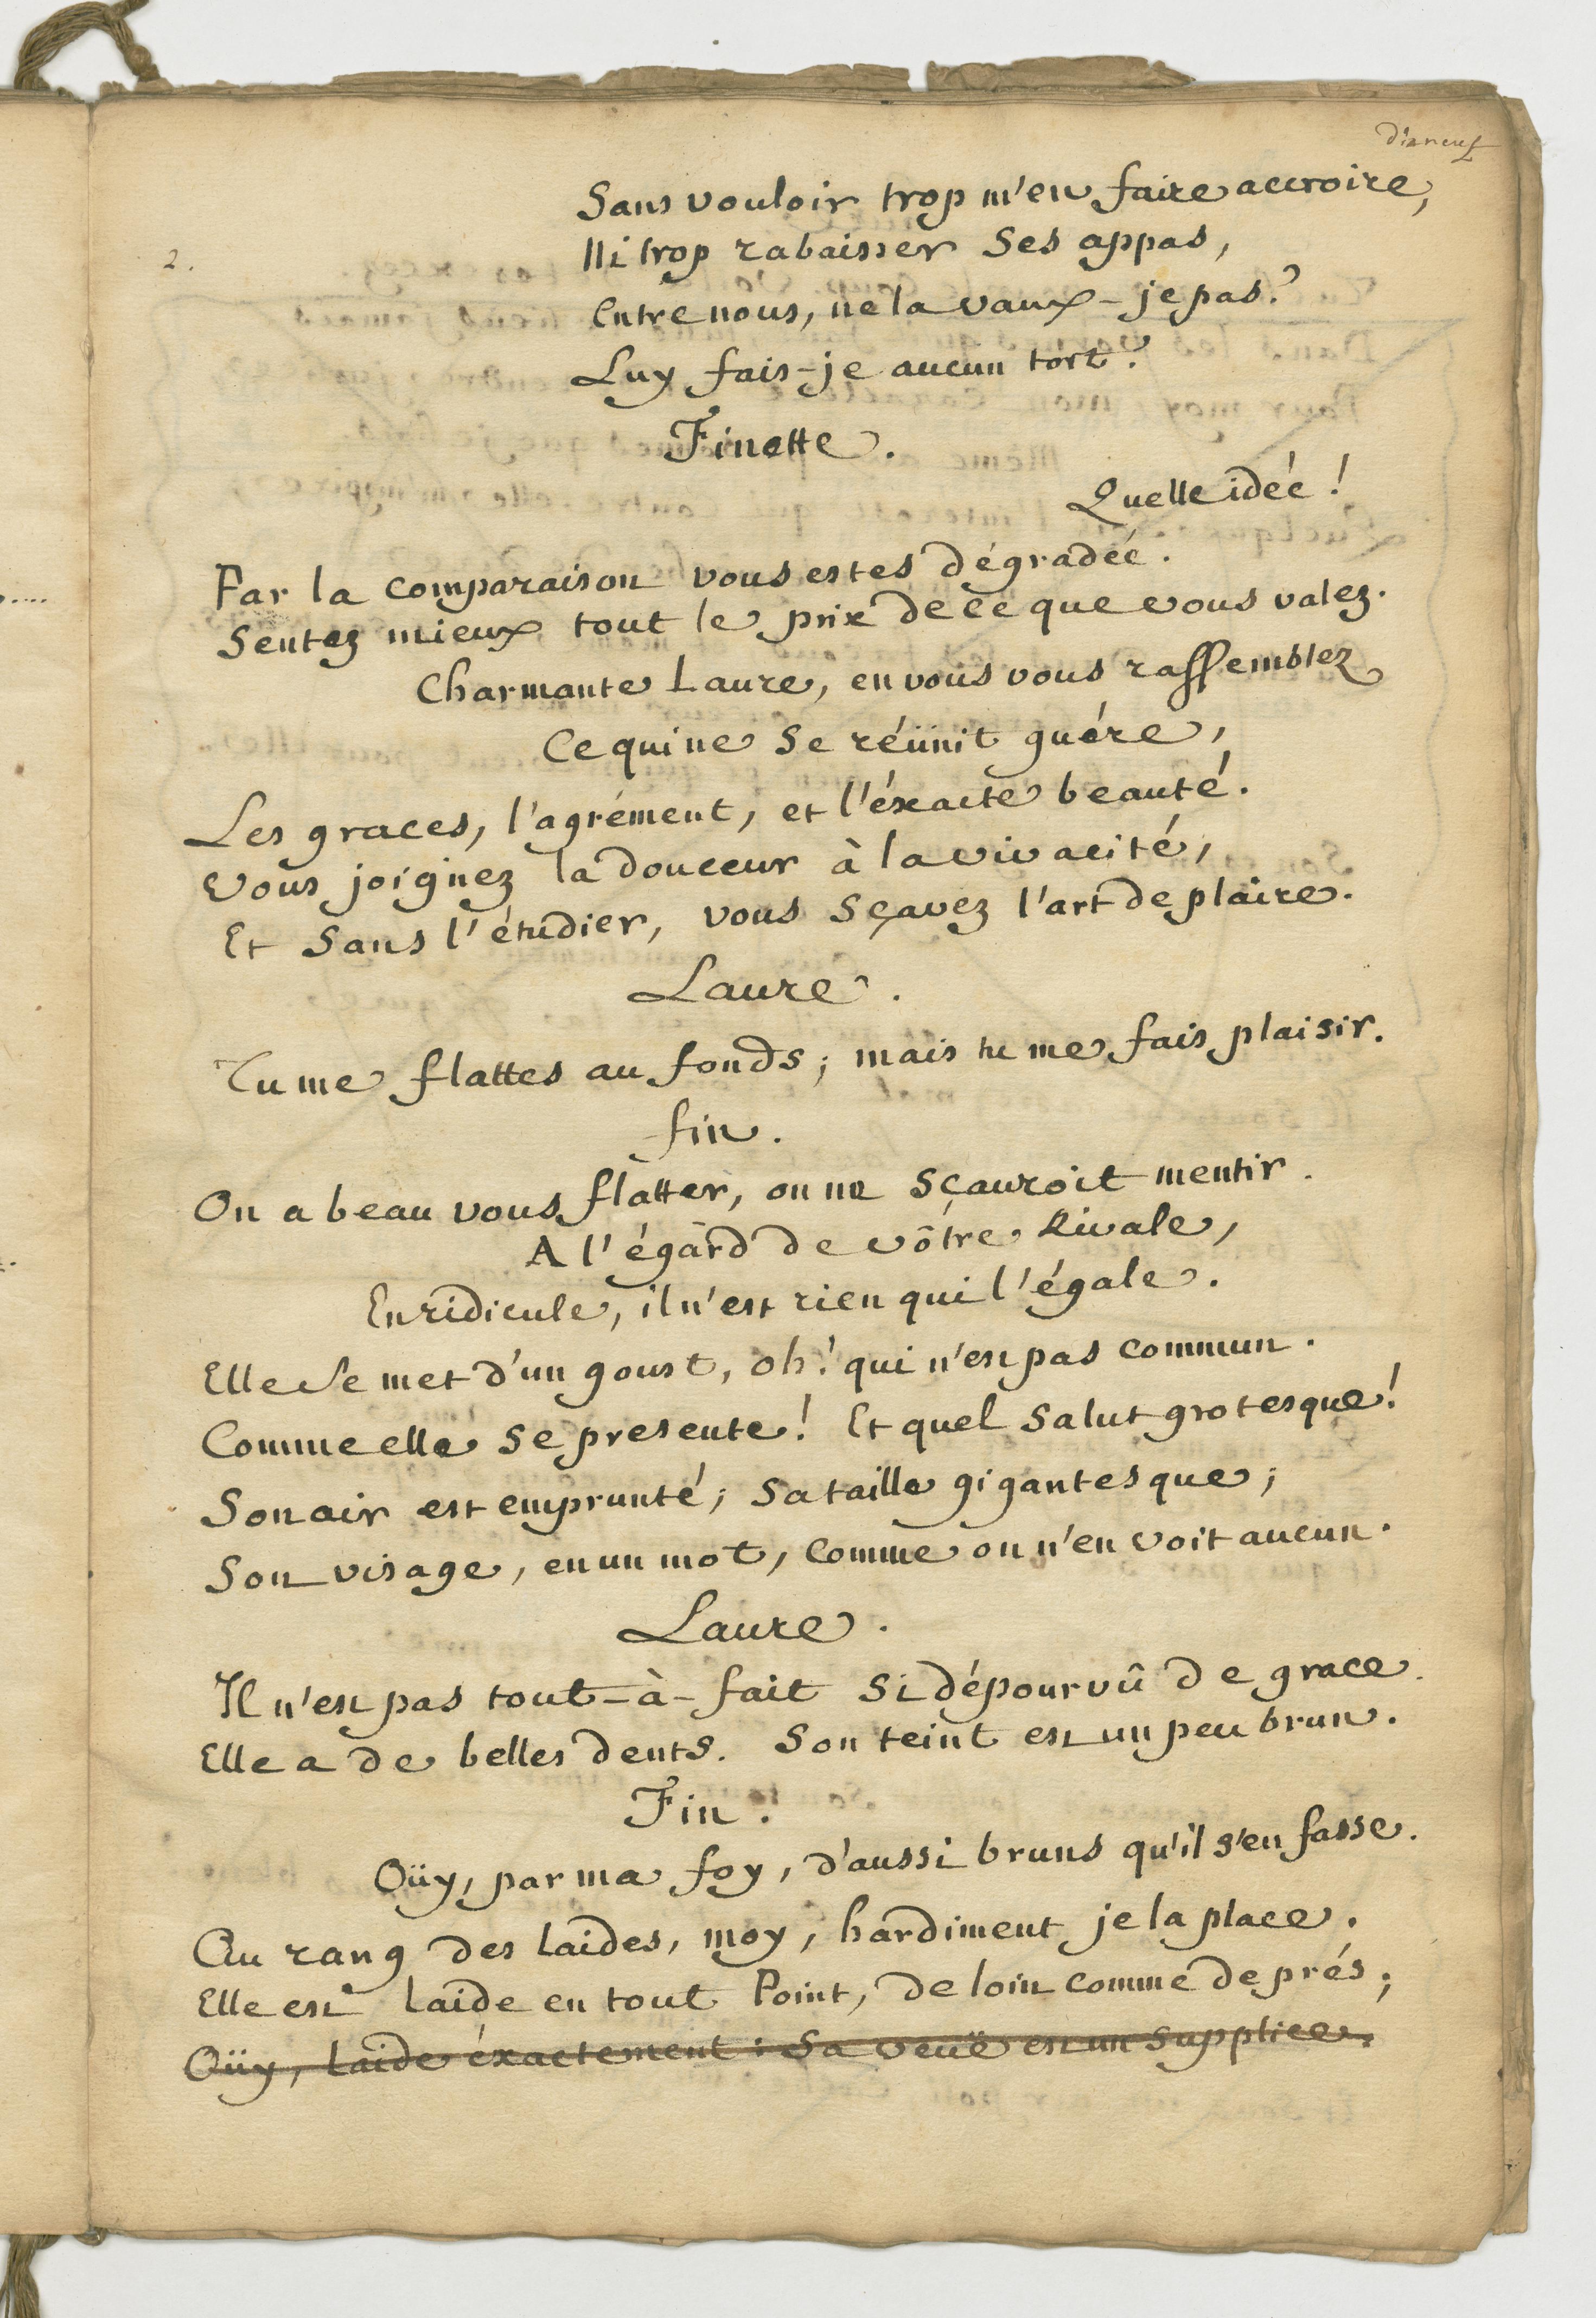 dixneuf
Sans vouloir trop m'en faire accroire,
2.
Ni trop rabaisser Ses appas,
Entre nous, ne la vaux-je pas?
Luy fais-je aucun tort?
Finette.
Quelle idée!
Par la comparaison vous estes dégradée.
Sentez mieux tout le prix de ce que vous valez.
Charmante Laure, en vous vous rassemblez
Ce qui ne Se réünit guére,
Les graces, l'agrément, et l'éxacte beauté.
Vous joignez la douceur à la vivacité,
Et Sans l'étudier, vous Sçavez l'art de plaire.
Laure.
Tu me flattes au fonds; mais tu me fais plaisir.
fin.
On a beau vous flatter, on ne Sçauroit mentir.
A l'égard de vôtre Rivale,
En ridicule, il n'est rien qui l'égale.
Elle Se met d'un goust, oh! qui n'est pas commun.
Comme elle Se presente! Et quel Salut grotesque!
Son air est emprunté; Sa taille gigantesque;
Son visage, en un mot, Comme on n'en voit aucun.
Laure.
Il n'est pas tout-à-fait Si dépourvû de grace.
Elle a de belles dents. Son teint est un peu brun.
Fin.
Oüy, par ma foy, d'aussi bruns qu'il s'en fasse.
Au rang des Laides, moy, hardiment je la place.
Elle est Laide en tout Point, de loin comme de prés;
Oüy, Laide éxactement: Sa veuë est un Supplice,